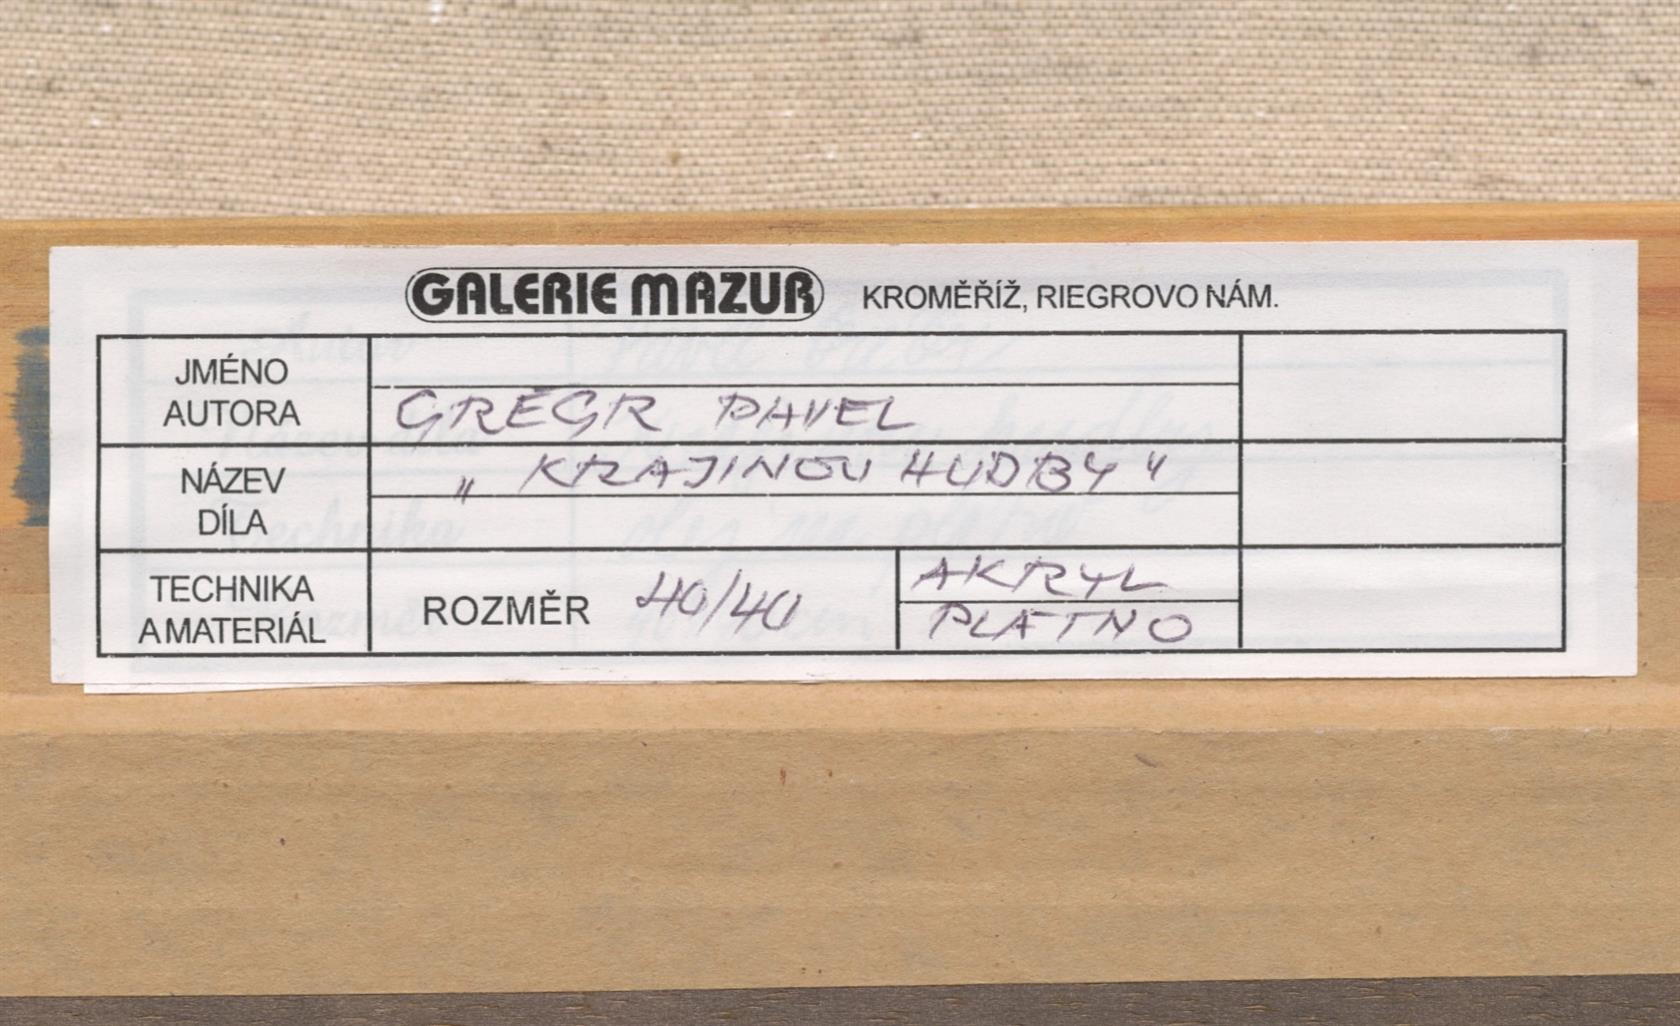 GALERIE MAZUR KROMĚŘÍŽ, RIEGROVO NÁM.
JMÉNO
AUTORA
GRÉGR PAVEL
NÁZEV
DÍLA
„ KRAJINOU HUDBY “
TECHNIKA
A MATERIÁL
ROZMĚR 40/40
AKRYL
PLÁTNO